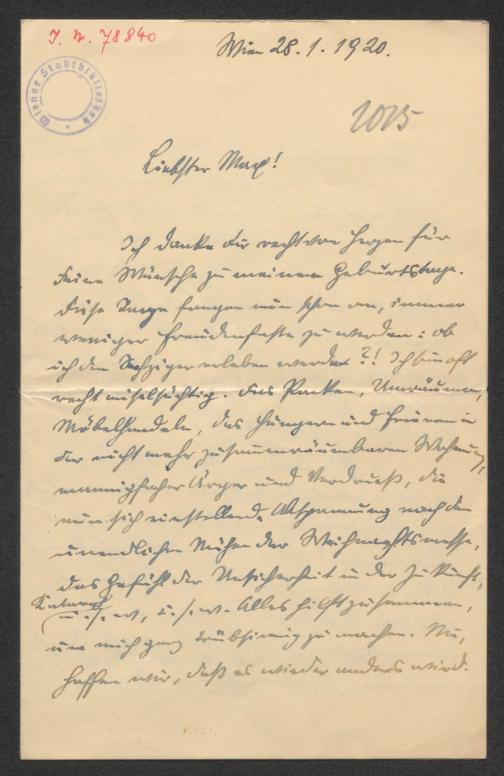 J. N. 78840
Wiener Stadtbibliothek
Wien 28.1.1920.
1015
Liebster Max!
Ich danke Dir recht von Herzen für
Deine Wünsche zu meinem Geburtstage.
Diese Tage fangen nun schon an, immer
weniger Freudenfeste zu werden: ob
ich den Sechziger erleben werde?! Ich bin oft
recht miselsüchtig. Das Packen, Umräumen,
Möbelhandeln, das Hungern und Frieren in
der nicht mehr zusammenräumbaren Wohnung,
mannigfacher Ärger und Verdruß, die
nun sich einstellende Abspannung nach den
unendlichen Mühen der Weihnachtsmesse,
das Gefühl der Unsicherheit in der Zukunft,
u.s.w., u.s.w. Alles hilft zusammen,
um mich ganz trübsinnig zu machen. Nu,
hoffen wir, daß es wieder anders wird.